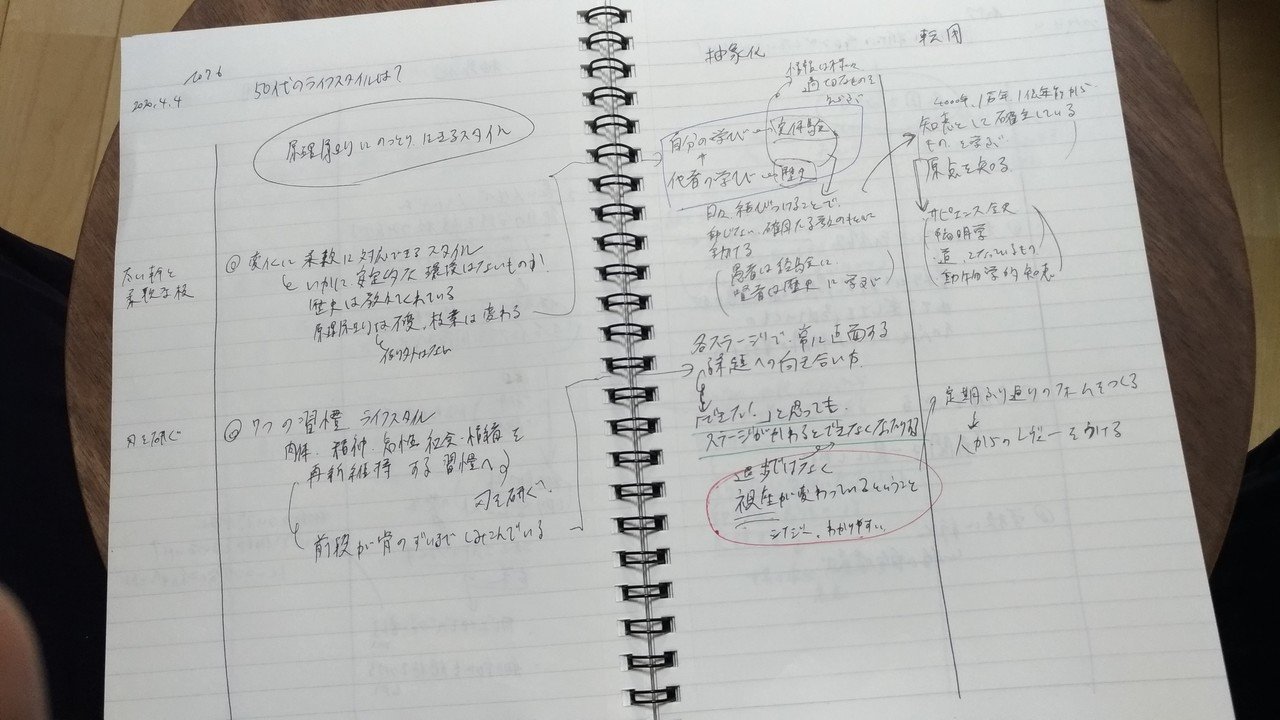 2020.4.4
50代のライフスタイルは?
原理原則にのっとり生きるスタイル
太い幹と
柔軟な枝
@ 変化に柔軟に対応できるスタイル
いかに安定的な環境はないものか
歴史は教えてくれている
原理原則は不変、枝葉は変わる
刃を研ぐ
@ 7つの習慣 ライフスタイル
肉体、精神、知性、社会・情緒を
再新維持する習慣へ
刃を研ぐ
前段が骨のずいまでしみこんでいる
抽象化
自分の学び 実体験
+
他者の学び 歴史
日々結びつけることで、
動じない、確固たる
動ける
愚者は経験に
賢者は歴史に学ぶ
各ステージで、常に直面する
課題への向き合い方
「できた!」と思っても、
ステージがかわるとできなくなったり
進歩だけでなく
視座が変わっているということ
シナジー、わかりやすい
転用
4000年、1万年、1億年前から
知恵として確立している
ものを学ぶ
原点を知る
サピエンス全史
動物学的知恵
定期ふり返りのフォームをつくる
人からのレビューをうける